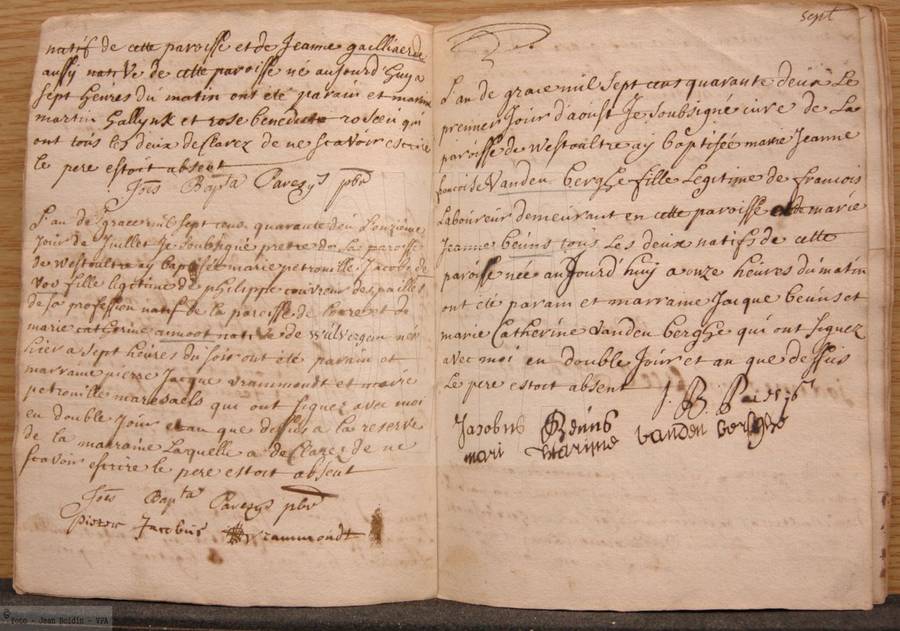 natif de cette paroisse et de Jeanne gailliaerde
aussy native de cette paroisse né aujourd'huy a
sept heures du matin ont été parain et marine
martin Gallynk et rose benedicte roseeu qui
ont tous les deux declarez de ne scavoir escrire
le pere estoit absent
Joes Bapta Parezys pbr
L'an de grace mil sept cens quarante deu l'onzieme
Jour de Juillet Je soubsigné pretre de la paroisse
de westoultre ay baptisée marie petronille Jacobe de
vos fille legitime de philippe couvreur des pailles
de sa profession natif de la paroisse de et de
marie catherine native de wulvergem née
hier a sept heures du soir ont été parain et
marrame pierre Jacque vrammondt et marie
petronille maresaels qui ont signez avec moi
en double Jour et an que dessus a la reserve
de la marraine Laquelle a declarez de ne
scavoir escrire le pere estoit absent
Joes Bapta Parezys pbr
Pieter Jacobus vrammondt
sept
L'an de grace mil sept cens quarante deux Le
premier Jour d'aoust Je soubsigné curé de La
paroisse de westoultre ay baptisée marie Jeanne
francoise Vanden berghe fille Legitime de francois
Laboureur demeurant en cette paroisse et de marie
Jeanne beuns tous Les deux natifs de cette
paroisse née aujourd'huy a onze heures du matin
ont été parain et marrame Jacque beuns et
marie Catherine vanden berghe qui ont signez
avec moi en double Jour et an que dessus
Le pere estoit absent
Jacobus Beuns
mari vanden berghe
foto - Jean Boidin - VFA